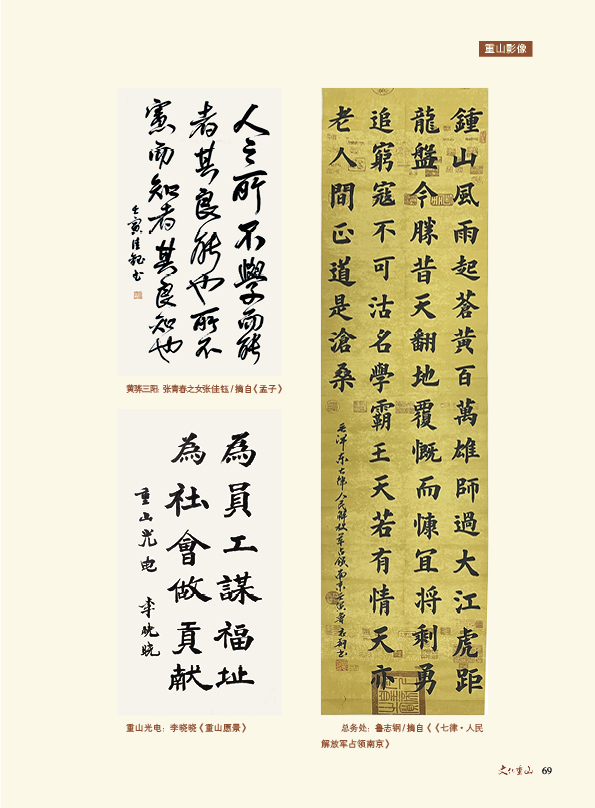 重山影像
人之所不學而能
者其良能也所不
慮而知者其良知也
壬寅佳鈺书
黄骅三阳：张青春之女张佳钰/摘自《孟子》
為員工謀福址
為社會做貢献
重山光电 李晓晓
重山光电：李晓晓《重山愿景》
鍾山風雨起蒼黃百萬雄師過大江虎距
龍盤今勝昔天翻地覆慨而慷宜将剩勇
追窮寇不可沽名學霸王天若有情天亦
老人間正道是滄桑
毛泽东七律人民解放军占领南京壬寅
总务处：鲁志钢/摘自《《七律·人民
解放军占领南京》
文化重山 69